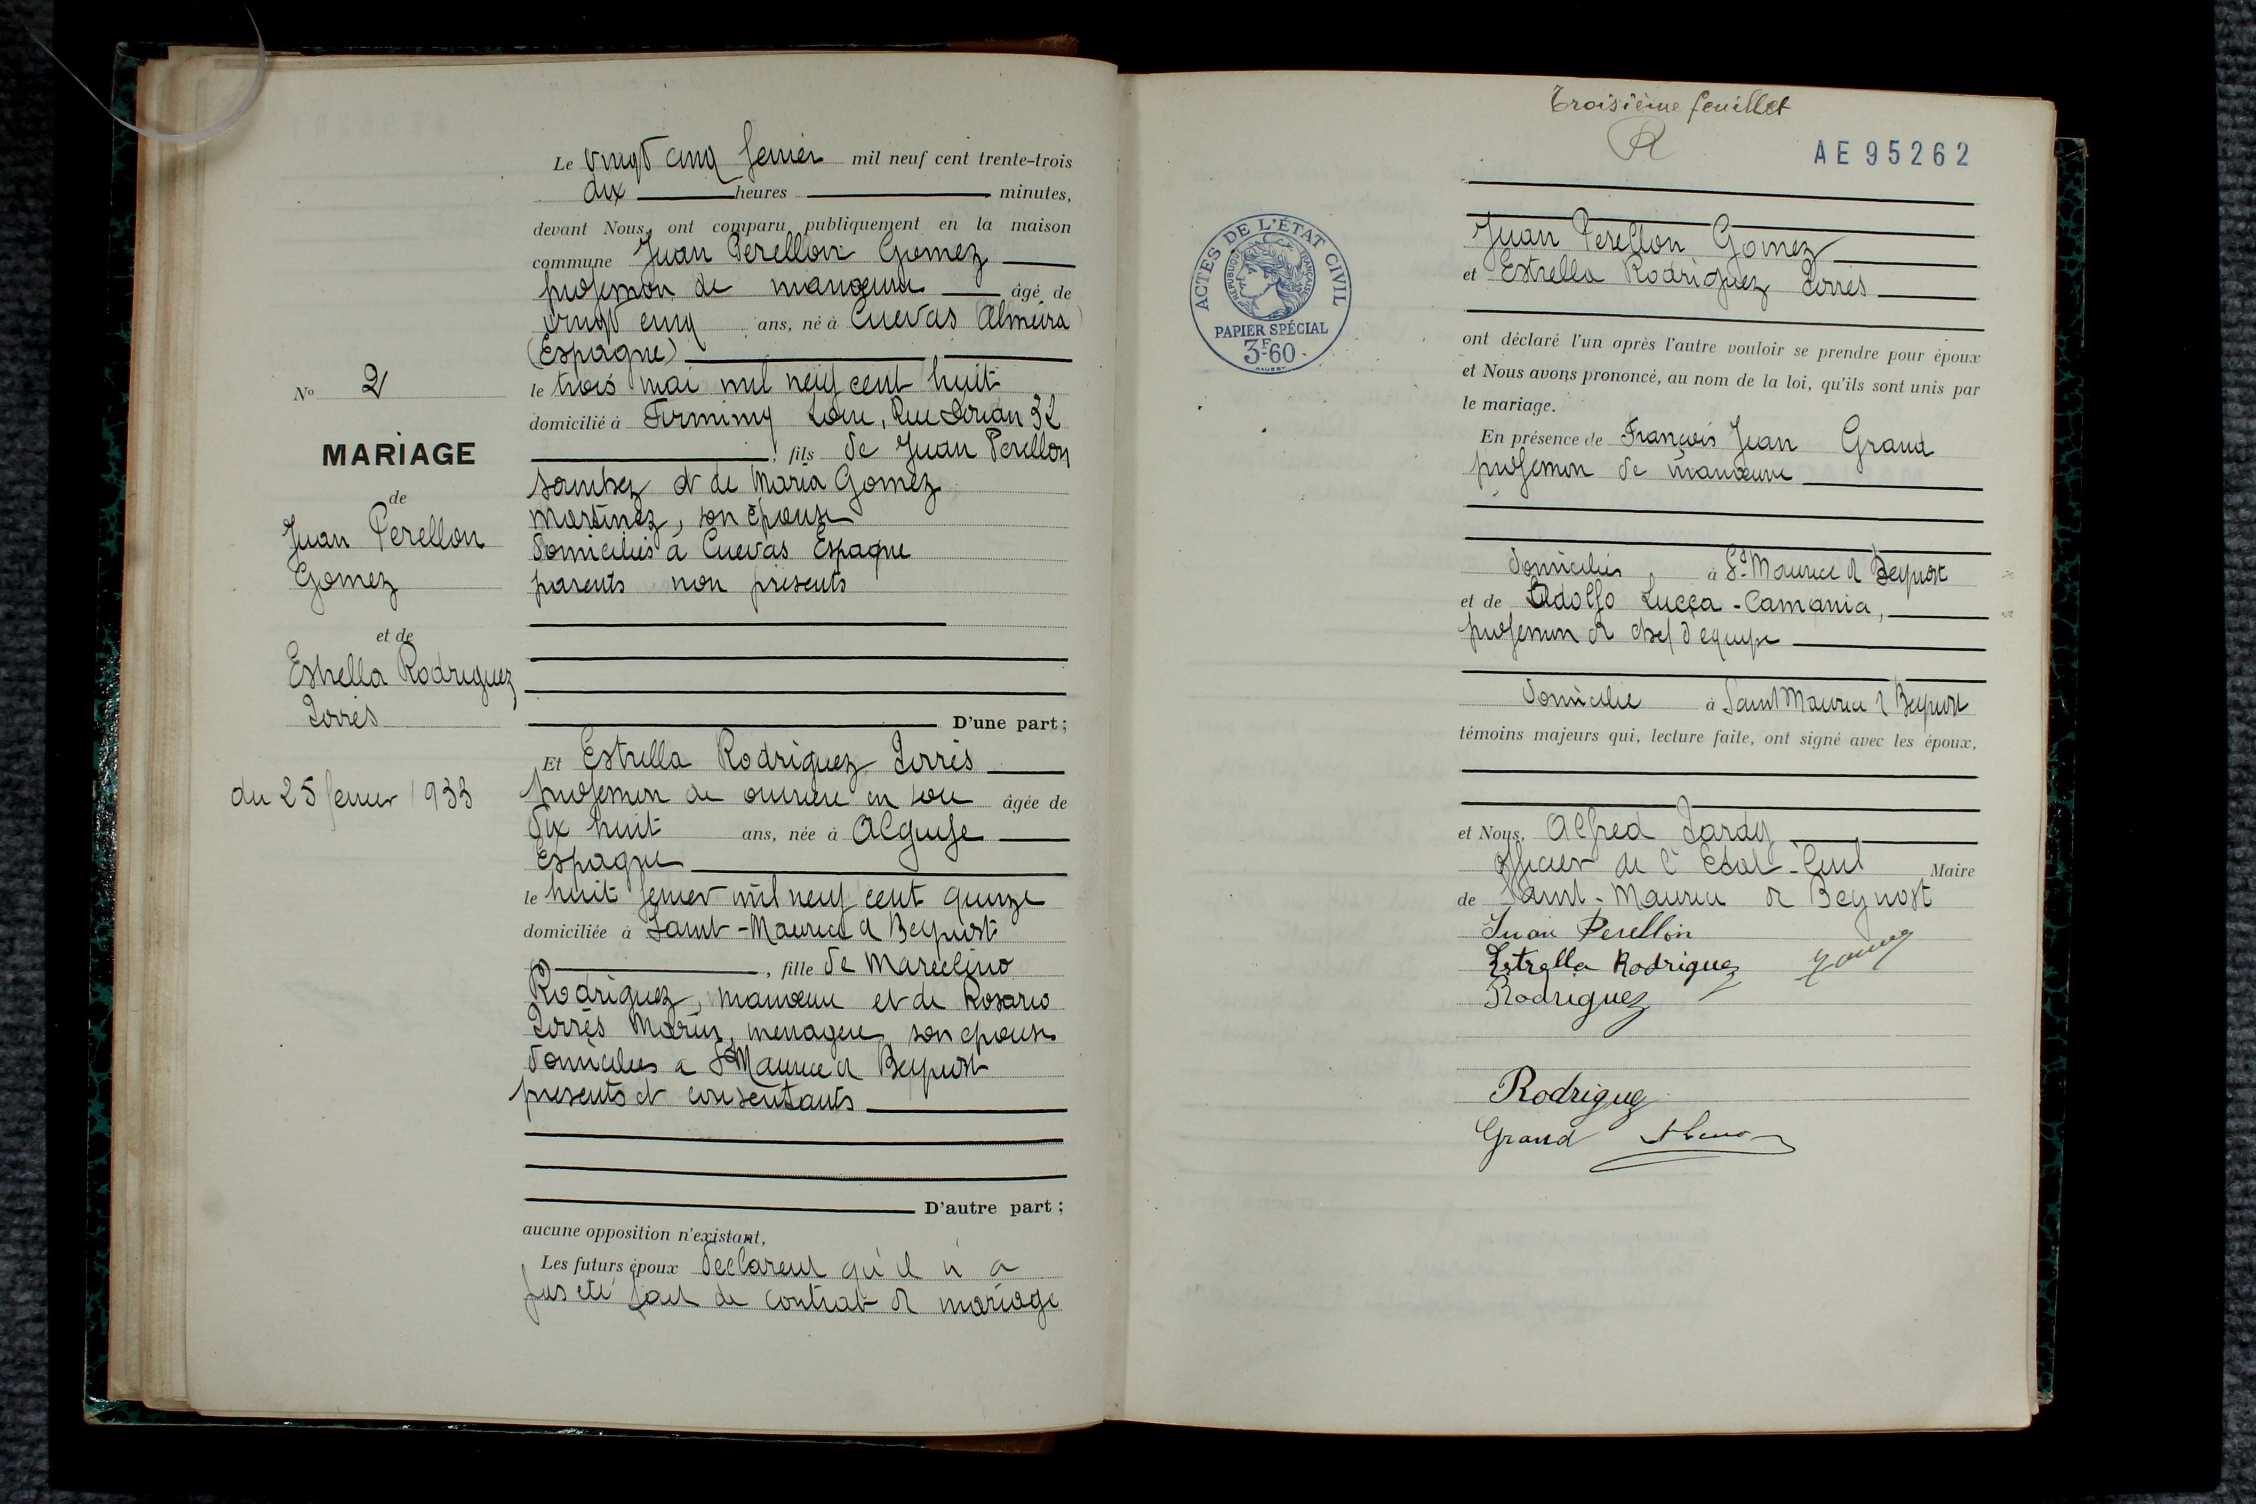 Le vingt cinq fevrier mil neuf cent trente-trois
dix heures minutes,
devant Nous, ont comparu publiquement en la maison
commune Juan Perellon Gomez
profession de manœuvre âgé de
vingt cinq ans, né à Cuevas Almeira
(Espagne)
le trois mai mil neuf cent huit
domicilié à Firminy Loire, Rue Dorian 32
, fils de Juan Perellon
Sanchez et de Maria Gomez
Martinez, son épouse
domiciliés à Cuevas Espagne
parents non présents
D'une part;
No 2
MARIAGE
de
Juan Perellon
Gomez
et de
Estrella Rodriguez
Torrès
du 25 fevrier 1933
Et Estrella Rodriguez Torrès
profession de ouvrière en soie âgée de
dix huit ans, née à Alguife
Espagne
le huit fevrier mil neuf cent quinze
domiciliée à Saint-Maurice d Beynost
, fille de Marcelino
Rodriguez, manœuvre et de Rosario
Torrès Marin, menagere son epouse
domiciliés a St Maurice d Beynost
presents et consentants
D'autre part;
aucune opposition n'existant,
Les futurs époux declarent qu'il n'a
pas été fait de contrat de mariage
Troisième feuillet
AE95262
ACTES DE L'ÉTAT CIVIL
RÉPUBLIQUE FRANÇAISE
PAPIER SPÉCIAL
3F60
Juan Perellon Gomez
et Estrella Rodriguez Torrès
ont déclaré l'un après l'autre vouloir se prendre pour époux
et Nous avons prononcé, au nom de la loi, qu'ils sont unis par
le mariage.
En présence de François Jean Grand
profession de manœuvre
domiciliés à St Maurice d Beynost
et de Adolfo Lucça-Camania,
profession de chef d'equipe
domicilie à Saint Maurice d Beynost
témoins majeurs qui, lecture faite, ont signé avec les époux,
et Nous, Alfred Tardy
officier de l'Etat-Civil Maire
de Saint-Maurice de Beynost
Juan Perellon
Estrella Rodriguez
Rodriguez
Rodriguez
Grand